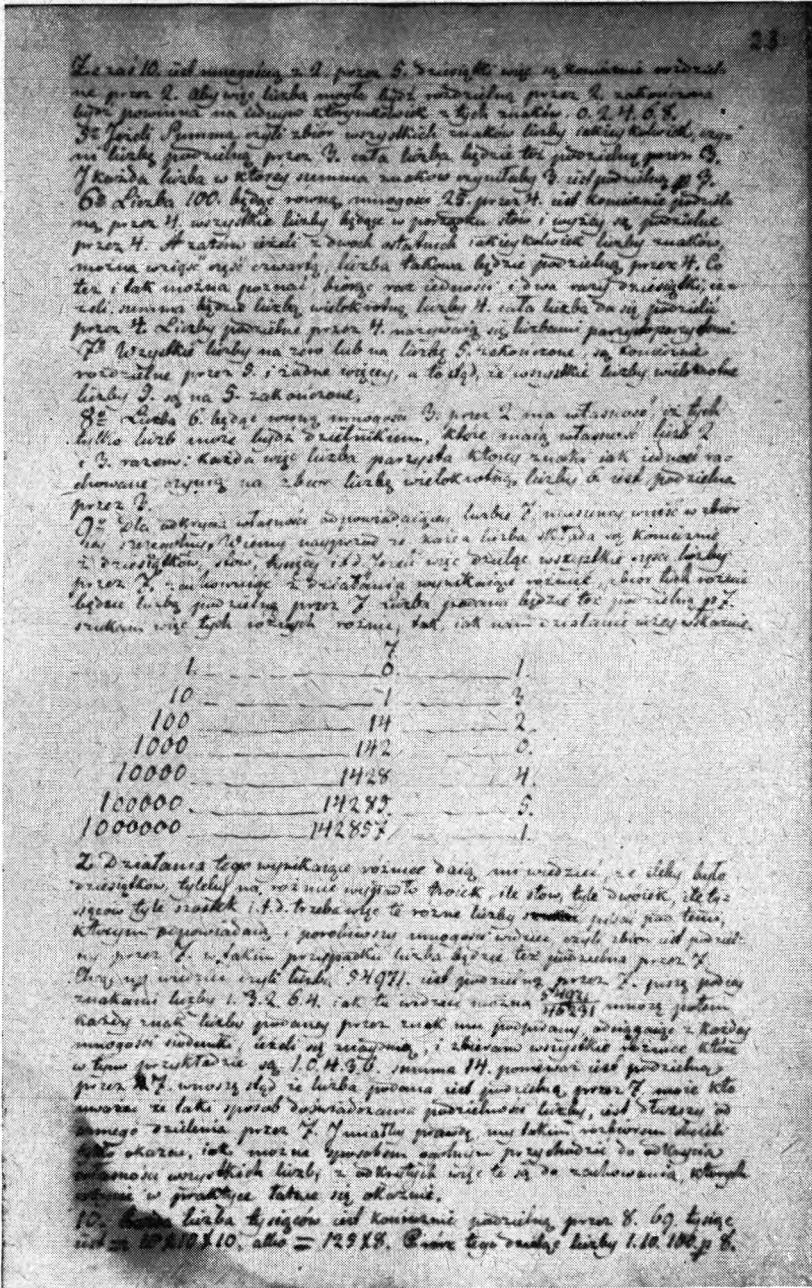 23
Że zaś 10. iest mnogością z 2. przez 5. dziesiątki więc są koniecznie rozdziel-
ne przez 2. Aby więc liczba mogła bydź rozdzielną przez 2. zakończona
bydź powinna na iednym którymkolwiek z tych znaków. 0. 2. 4. 6. 8.
5º Jeżeli Summa czyli zbiór wszystkich znaków liczby iakieykolwiek, czy-
ni liczbę podzielną przez 3. cała liczba będzie też podzielną przez 3.
I każda liczba w którey summa znaków czyniłaby 3. iest podzielną p 3.
6º Liczba 100. będąc równą mnogości 25. przez 4. iest koniecznie podziel-
ną przez 4. wszystkie liczby będące w porządku stów i wyżey są podzielne
przez 4. A zatém ieżeli z dwóch ostatnich iakieykolwiek liczby znaków,
można wziąść część czwartą, liczba takowa będzie podzielną przez 4. Co
też i tak można poznać, biorąc raz iedności i dwa razy dziesiątki, ie-
żeli summa będzie liczbą wielokrotną liczby 4. cała liczba da się podzielić
przez 4. Liczby podzielne przez 4. nazywaią się liczbami
7º Wszystkie liczby na zero lub na liczbę 5. zakończone, są koniecznie
rozdzielne przez 5. i żadne więcey, a to stąd, że wszystkie liczby wielokrotne
liczby 5. są na 5. zakończone.
8º Liczba 6. będąc równą mnogości 3. przez 2 ma własność, iż tych
tylko liczb może bydź dzielnikiem, które maią własność liczb 2
i 3. razem: każda więc liczba parzysta którey znaki iak iedności ra-
chowane, czynią na zbiór liczbę wielokrotną liczby 6 iest podzielna
przez
9º Dla odkrycia własności odpowiadaiącey liczbie 7, musiemy wniść w zbiór
iey szczególny. Wiemy naprzód że każda liczba składa się koniecznie
z dziesiątków, stów, tysięcy i t.d. Jeżeli więc dzieląc wszystkie części liczby
przez 7. z działania wynikaiące różnice, zbiór tych różnic
będzie liczbą podzielną przez 7 Liczba podana będzie też podzielną p 7.
szukam więc tych różnych różnic, tak, iak nam działanie niżey wskaznie.
7
1. 0 1.
10 1 3
100 14 2
1000 142 0.
10000 1428 4.
100000 14285. 5.
1000000 142857 1.
Z Działania tego wynikaiące różnice daią mi widzieć, że ileby było
dziesiątków, tyleby na różnice wypadło trójek, ile stów, tyle dwójek, ile ty-
sięców tyle szóstek i.t.d. trzeba więc te różne liczby pisać pod temi,
którym odpowiadaią i porobiwszy mnogości widzieć, czyli zbiór iest podziel-
ny przez 7. w takim przypadku liczba będzie też podzielna przez 7.
Chcę np. wiedzieć czyli liczba 54971. iest podzielną przez 7. piszę podtemi
znakami liczby 1. 3. 2. 6. 4. iak tu widzieć można 54971 / 46231 mnożę potem
każdy znak liczby podaney przez znak mu podpisany, odciągaiąc z każdey
mnogości siódemki, ieżeli się znayduią, i zbieram wszystkie różnice które
w tym przykładzie są 1.0.4.3.6. summa 14. ponieważ iest podzielną
przez 7. wnoszę stąd że liczba podana iest podzielną przez 7. może kto
uważać że taki sposób doświadczania podzielności liczby, iest dłuższy od
samego dzielenia przez 7. I miałby prawdę, my takim rozbiorem chcieli
tylko okazać, iak można sposobem ogólnym przychodzić do odkrycia
własności wszystkich liczb, z odkrytych więc te są do zachowania, których
użycie w praktyce łatwe się okaznie.
10. Każda liczba tysięców iest koniecznie podzielną przez 8. bo tysiąc
iest = 10 X 10 X 10. albo = 125 X 8. Prócz tego dzieląc liczby 1. 10. 100 p 8.